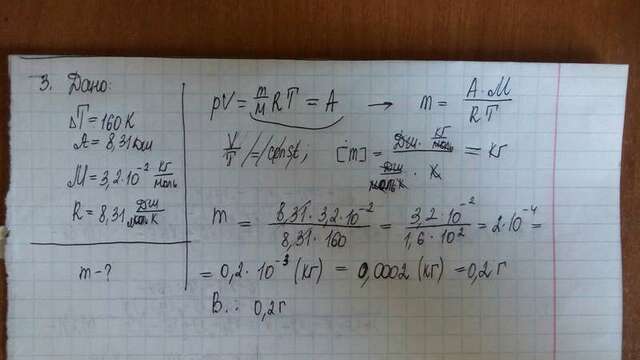 3. Дано:
ΔT = 160 К
A = 8,31 Дж
M = 3,2·10⁻² кг/моль
R = 8,31 Дж/моль·К
m - ?
pV = m/M RT = A → m = A·M/RT
V/T = const; [m] = Дж · кг/моль / Дж/моль·К · К = кг
m = 8,31·3,2·10⁻²/8,31·160 = 3,2·10⁻²/1,6·10² = 2·10⁻⁴ =
= 0,2·10⁻³ (кг) = 0,0002 (кг) = 0,2 г
В.: 0,2 г